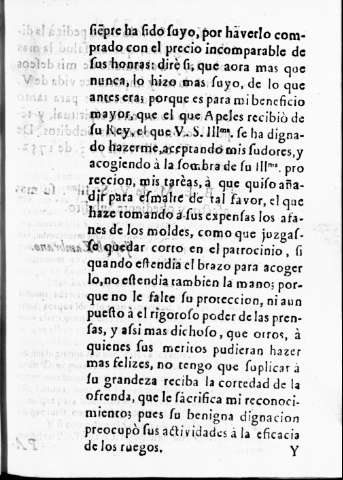 siẽpre ha sido suyo, por haverlo com-
prado con el precio incomparable de
sus honras: dirè si, que aora mas que
nunca, lo hizo mas suyo, de lo que
antes era; porque es para mi beneficio
mayor, que el que Apeles recibiò de
su Rey, el que V. S. Ill.ma. se ha digna-
do hazerme, aceptando mis sudores, y
acogiendo à la sombra de su Ill.ma. pro
teccion, mis tarèas, à que quiso aña-
dir para esmalte de tal favor, el que
haze tomando à sus expensas los afa-
nes de los moldes, como que juzgas-
se quedar corto en el patrocinio, si
quando estendia el brazo para acoger
lo, no estendia tambien la mano; por-
que no le falte su proteccion, ni aun
puesto à el rigoroso poder de las pren-
sas, y assi mas dichoso, que otros, à
quienes sus meritos pudieran hazer
mas felizes, no tengo que suplicar à
su grandeza reciba la cortedad de la
ofrenda, que le sacrifica mi reconoci-
miento; pues su benigna dignacion
preocupò sus actividades à la eficacia
de los ruegos. Y